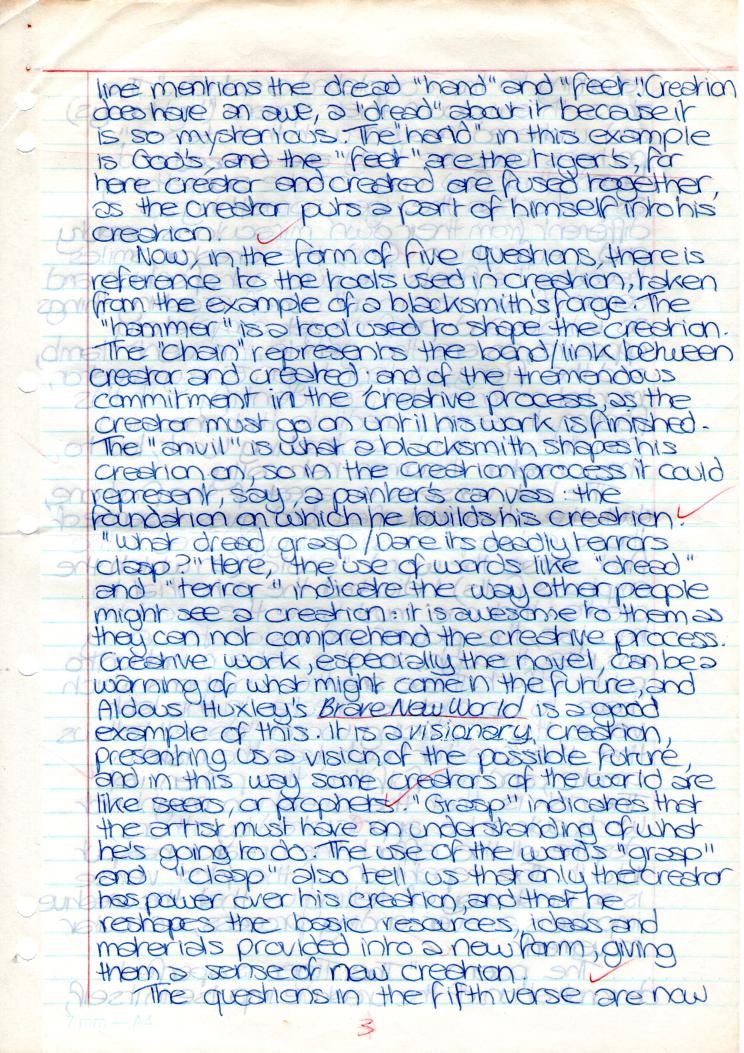 line mentions the dread "hand" and "feet". Creation
does have an awe, a "dread" about it because it
is so mysterious. The "hand" in this example
is God's, and the "feet" are the tiger's, for
here creator and created are fused together,
as the creator puts a part of himself into his
creation.
Now, in the form of five questions, there is
reference to the tools used in creation, taken
from the example of a blacksmith's forge. The
"hammer" is a tool used to shape the creation.
The "chain" represents the bond/link between
creator and created; and of the tremendous
commitment in the creative process, as the
creator must go on until his work is finished.
The "anvil" is what a blacksmith shapes his
creation on, so in the creation process it could
represent, say, a painter's canvas: the
foundation on which he builds his creation.
"What dread grasp/Dare its deadly terrors
clasp?" Here, the use of words like "dread"
and "terror" indicate the way other people
might see a creation: it is awesome to them as
they can not comprehend the creative process.
Creative work, especially the novel, can be a
warning of what might come in the future, and
Aldous Huxley's Brave New World is a good
example of this. It is a visionary creation,
presenting us a vision of the possible future,
and in this way some creators of the world are
like seers, or prophets. "Grasp" indicates that
the artist must have an understanding of what
he's going to do. The use of the words "grasp"
and "clasp" also tell us that only the creator
has power over his creation, and that he
reshapes the basic resources, ideas and
materials provided into a new form, giving
them a sense of new creation.
The questions in the fifth verse are now
7mm — A4
3